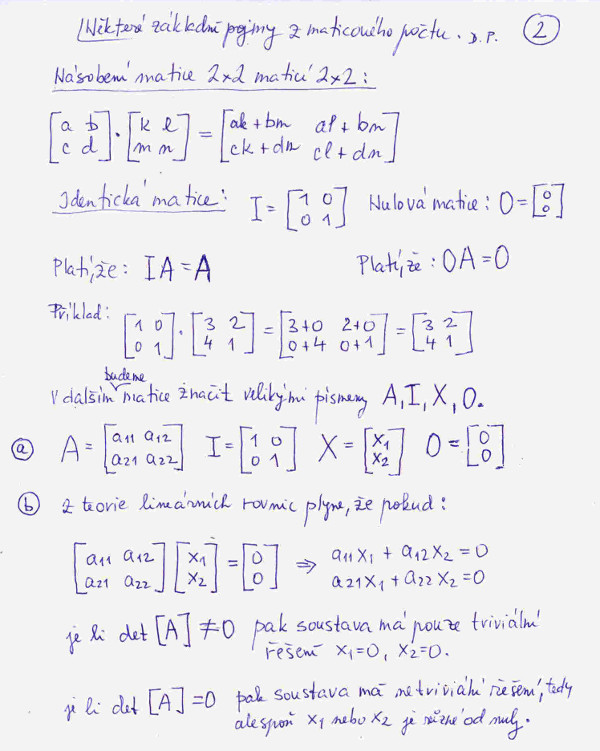 Některé základní pojmy z maticového počtu. D.P. 2
Násobení matice 2×2 maticí 2×2:
[a b; c d] · [k l; m n] = [ak+bm al+bn; ck+dm cl+dn]
Identická matice: I = [1 0; 0 1] Nulová matice: O = [0; 0]
Platí, že: IA = A Platí, že: OA = O
Příklad: [1 0; 0 1] · [3 2; 4 1] = [3+0 2+0; 0+4 0+1] = [3 2; 4 1]
V dalším budeme matice značit velikými písmeny A, I, X, O.
a A = [a11 a12; a21 a22] I = [1 0; 0 1] X = [x1; x2] O = [0; 0]
b z teorie lineárních rovnic plyne, že pokud:
[a11 a12; a21 a22] [x1; x2] = [0; 0] ⇒ a11x1 + a12x2 = 0
a21x1 + a22x2 = 0
je li det [A] ≠ 0 pak soustava má pouze triviální
řešení x1=0, x2=0.
je li det [A] = 0 pak soustava má netriviální řešení, tedy
alespoň x1 nebo x2 je různé od nuly.